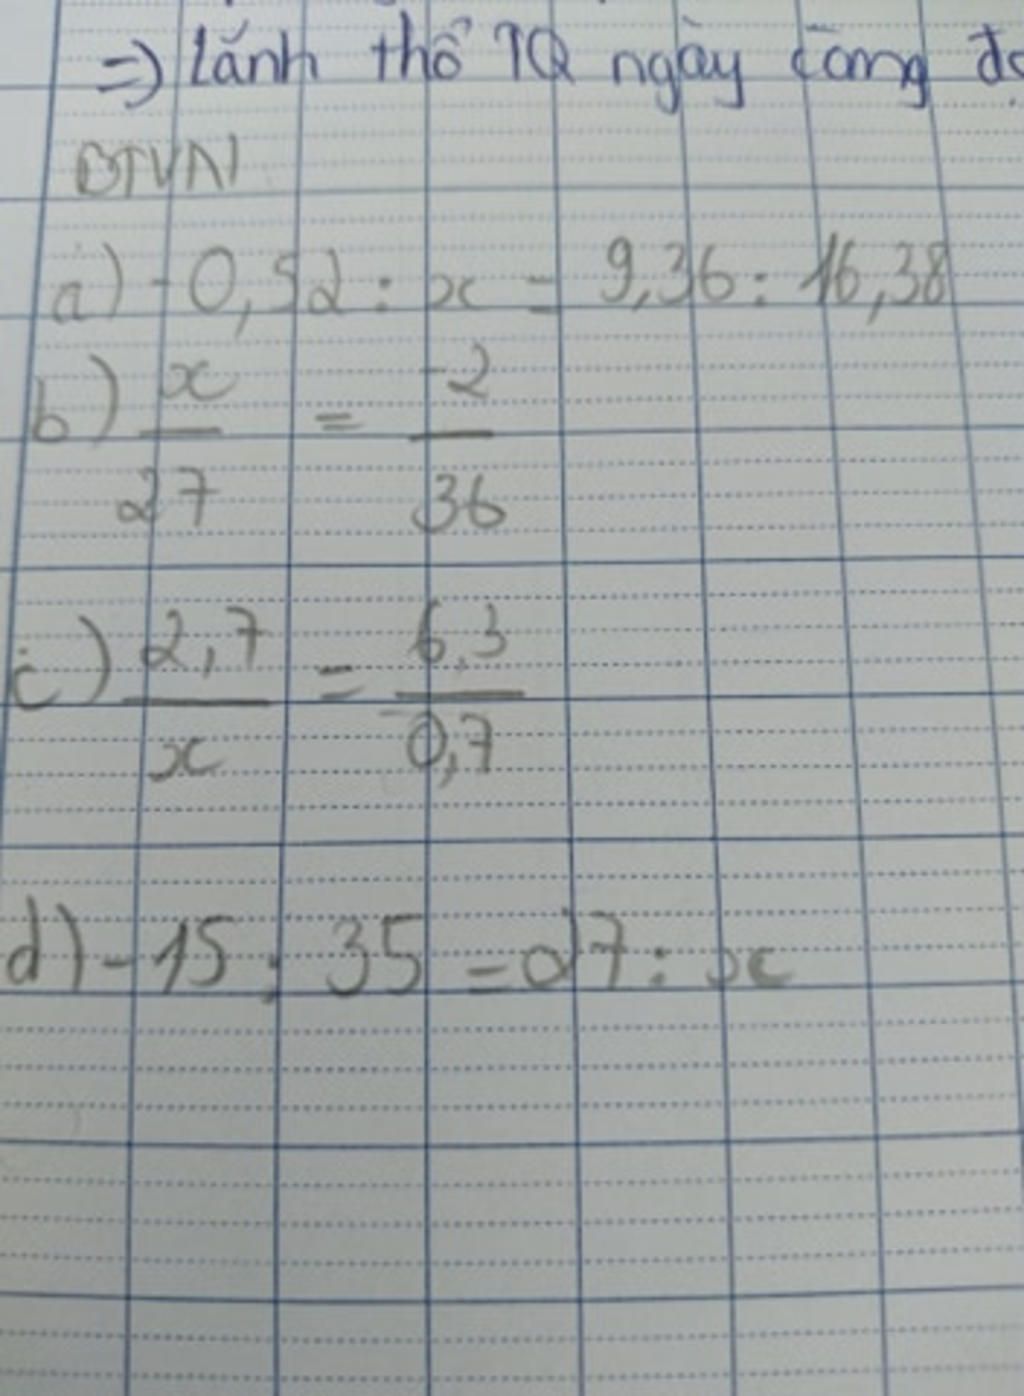 => Lãnh thổ TQ ngày càng
BTVN
a) -0,52 : x = 9,36 : 16,38
b) x/27 = -2/36
c) 2,7/x = 6,3/0,7
d) -15 : 35 = 27 : x